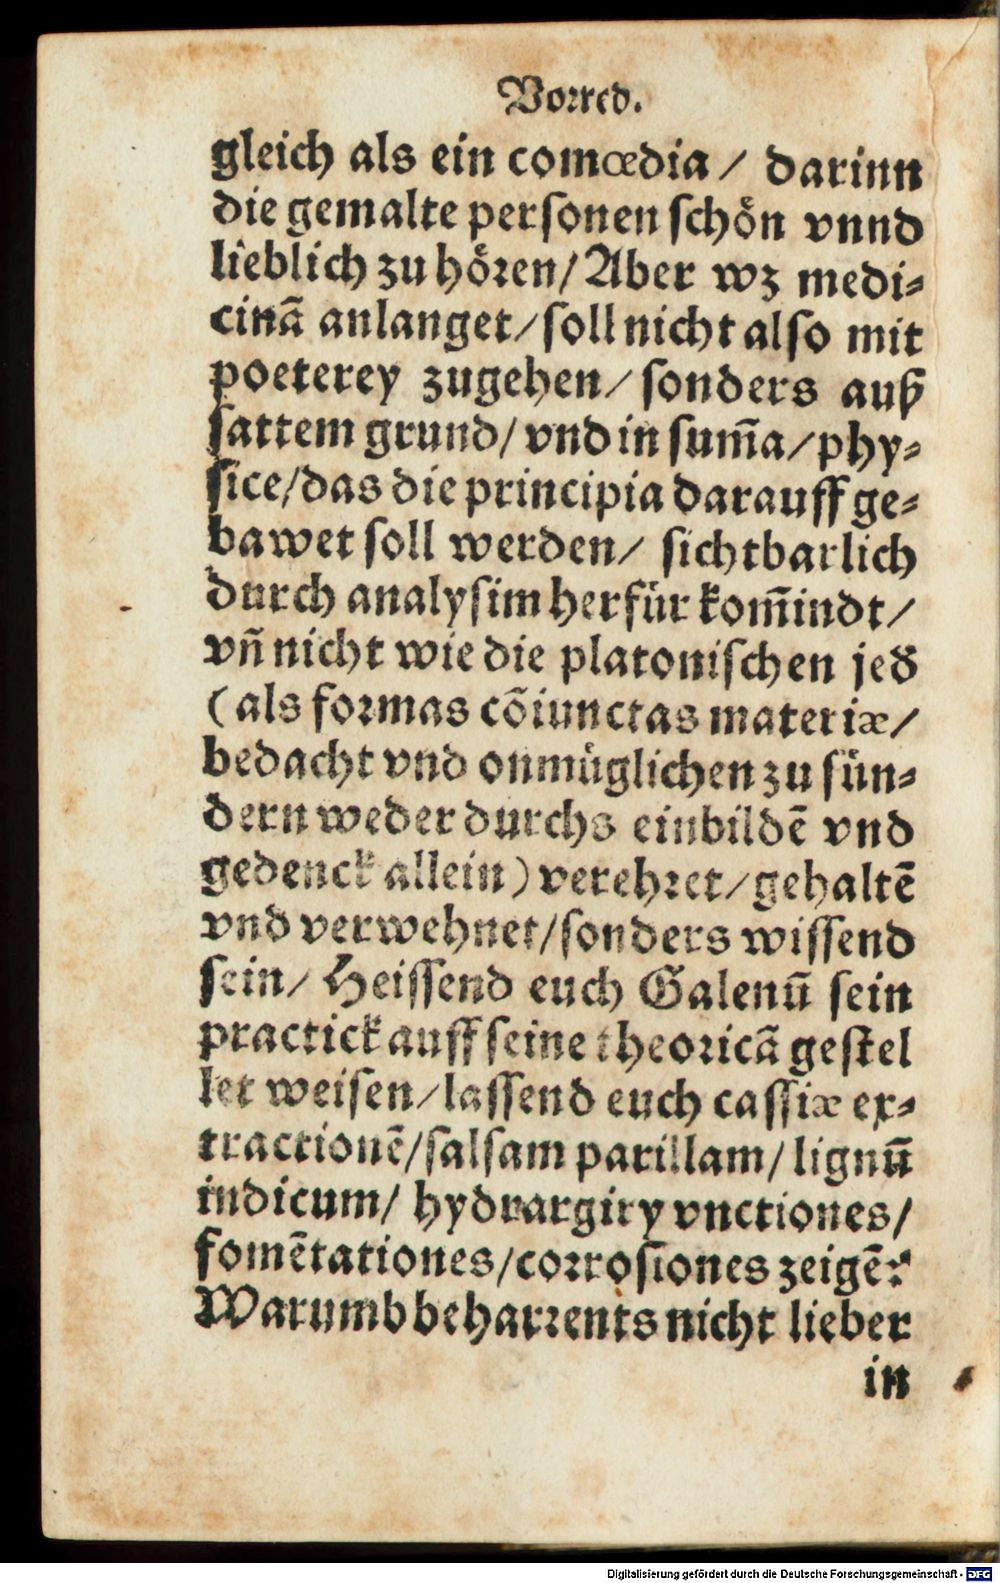 Vorred.
gleich als ein comœdia / darinn
die gemalte personen schön vnnd
lieblich zu hören / Aber wz medi-
cinã anlanget / soll nicht also mit
poeterey zugehen / sonders auß
sattem grund / vnd in sum̃a / phy-
sice / das die principia darauff ge-
bawet soll werden / sichtbarlich
durch analysim herfür kom̃indt /
vñ nicht wie die platonischen jed
( als formas cõiunctas materiæ /
bedacht vnd onmüglichen zu sün-
dern weder durchs einbildẽ vnd
gedenck allein ) verehret / gehaltẽ
vnd verwehnet / sonders wissend
sein / Heissend euch Galenũ sein
practick auff seine theoricã gestel
let weisen / lassend euch cassiæ ex-
tractionẽ / salsam parillam / lignũ
indicum / hydrargiry vnctiones /
fomẽtationes / corrosiones zeigẽ?
Warumb beharrents nicht lieber
in
Digitalisierung gefördert durch die Deutsche Forschungsgemeinschaft - DFG